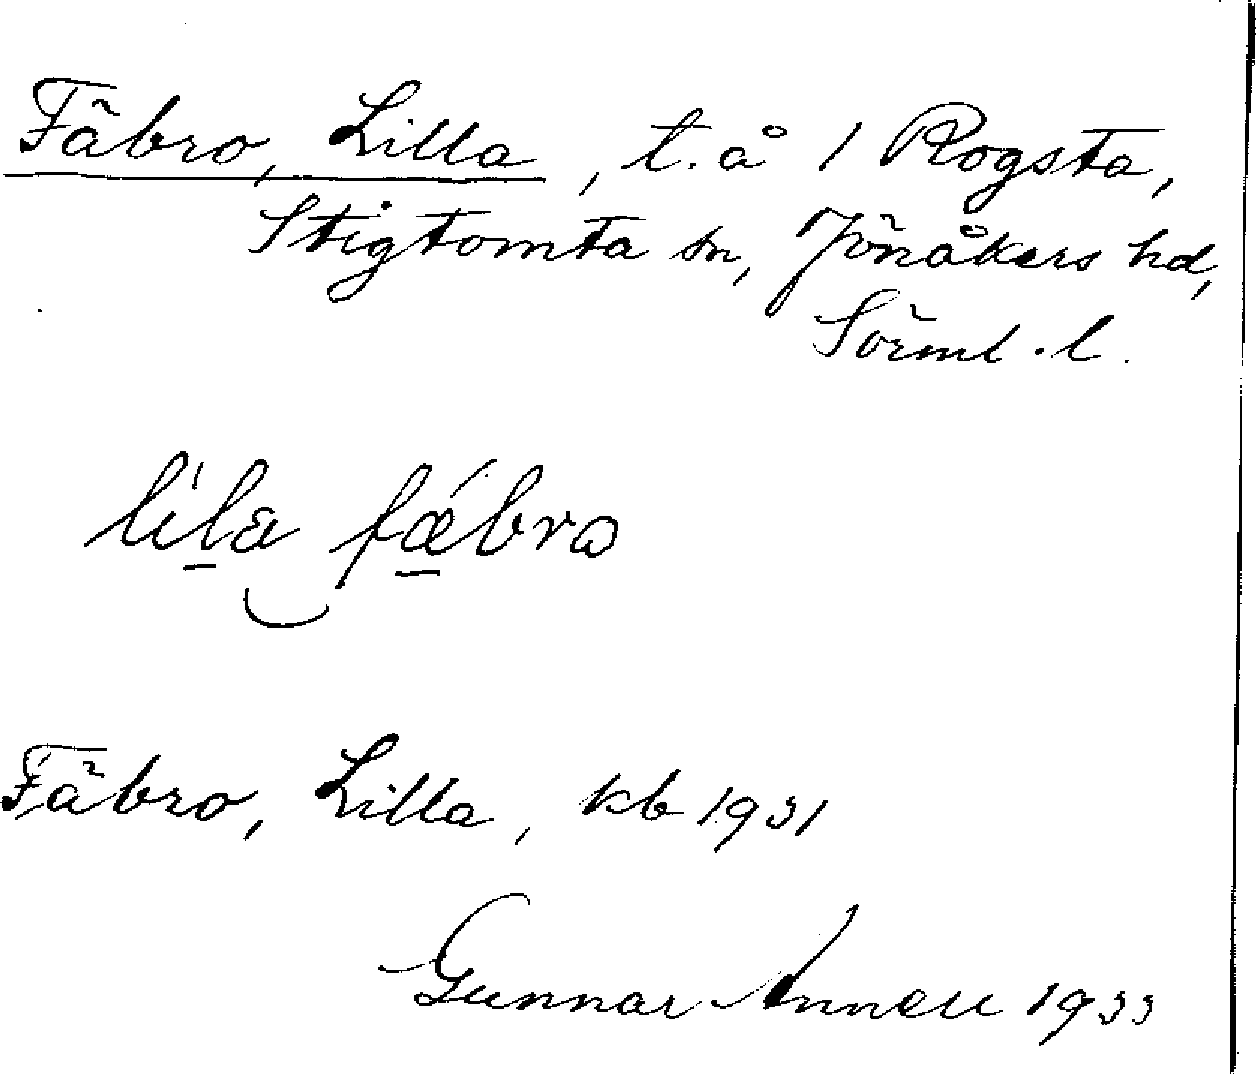 Fäbro, Lilla, t. å / Rogsta,
Stigtomta sn, Jönåkers hd,
Sörml. l.
lìla fǽbro
Fäbro, Lilla, kb 1931
Gunnar Annell 1933